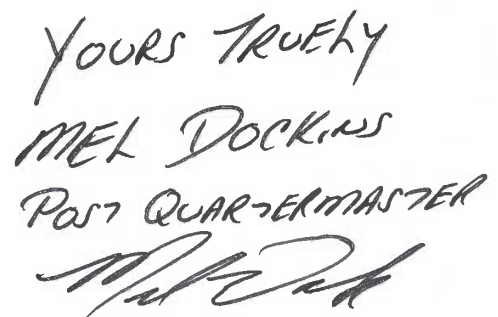 YOURS TRUELY
MEL DOCKINS
POST QUARTERMASTER